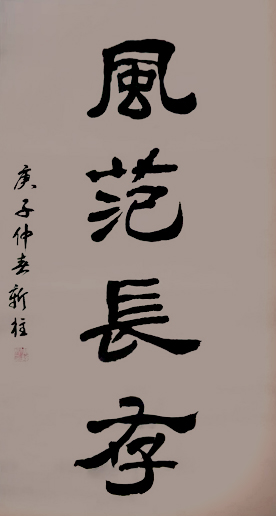 風范長存
庚子仲春新柱